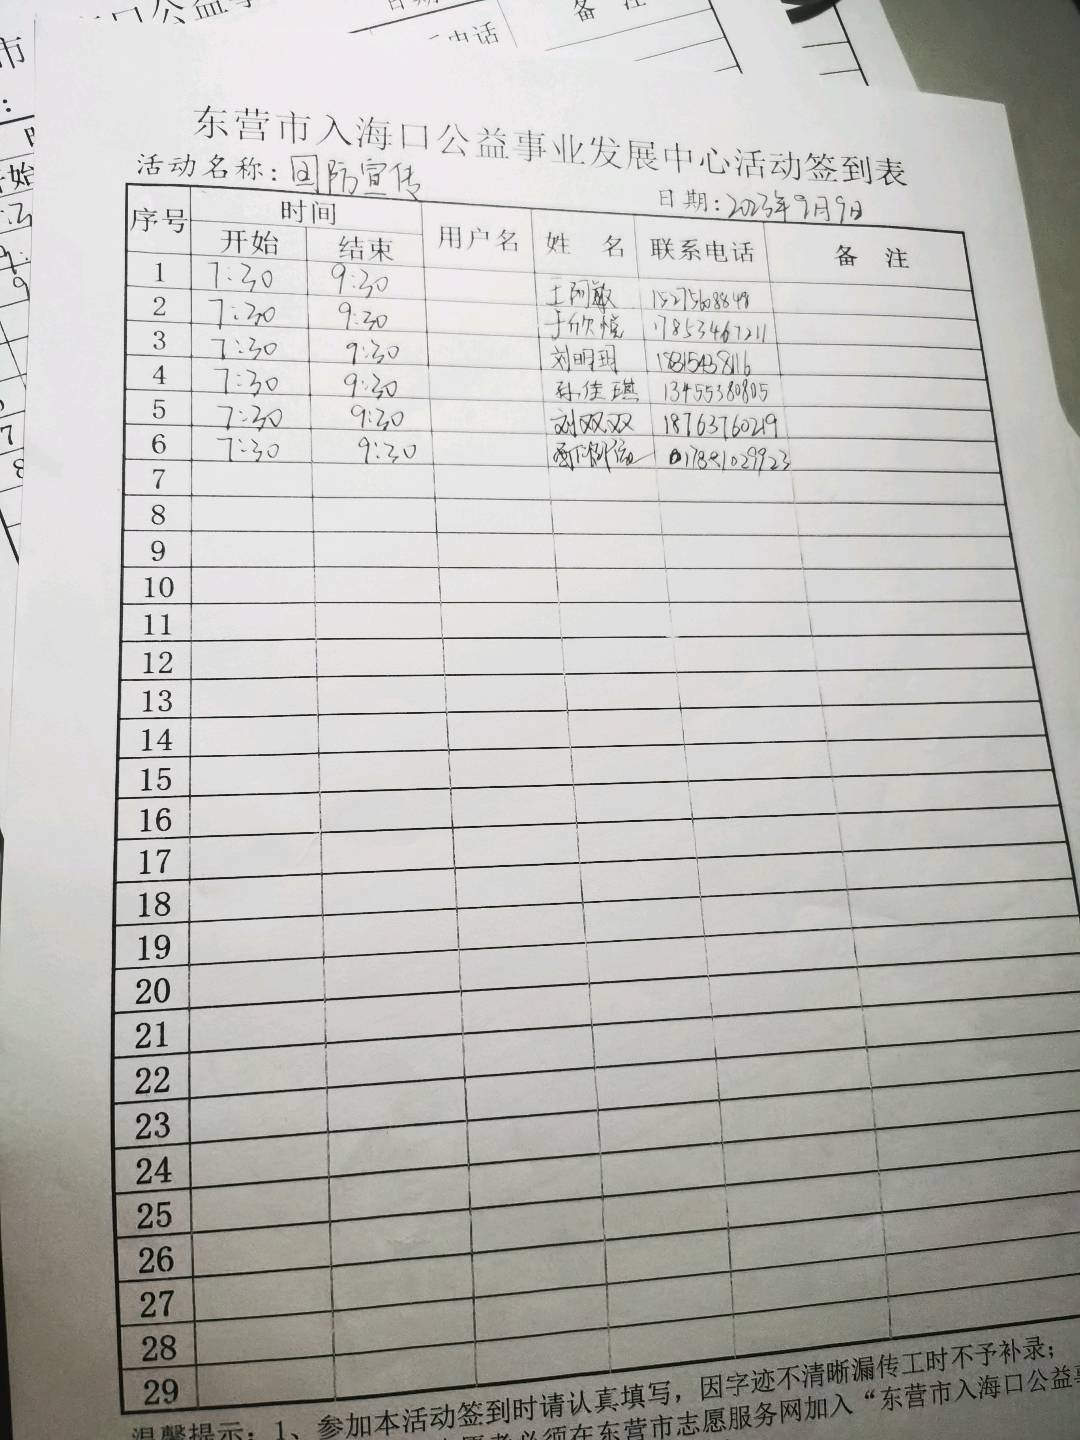 东营市入海口公益事业发展中心活动签到表
活动名称：国防宣传
日期：2023年9月9日
序号 时间 用户名 姓 名 联系电话 备 注
开始 结束
1 7:30 9:30 王阿敏 15275608848
2 7:30 9:30 于欣悦 17853467211
3 7:30 9:30 刘明玥 18315438116
4 7:30 9:30 孙佳琪 13455380805
5 7:30 9:30 刘双双 18763760219
6 7:30 9:30
7
8
9
10
11
12
13
14
15
16
17
18
19
20
21
22
23
24
25
26
27
28
29
温馨提示：1、参加本活动签到时请认真填写，因字迹不清晰漏传工时不予补录；
必须在东营市志愿服务网加入“东营市入海口公益事